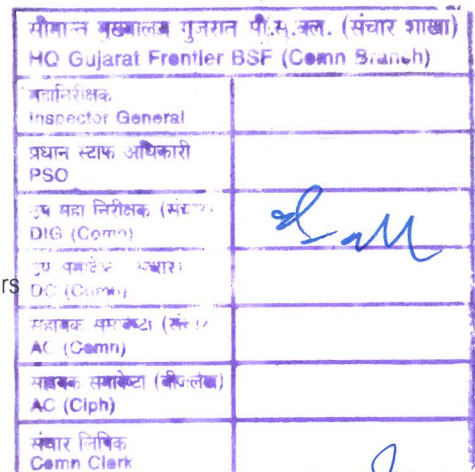 सीमान्त मुख्यालय गुजरात सी.सु.बल. (संचार शाखा)
HQ Gujarat Frontier BSF (Comn Branch)
महानिरीक्षक
Inspector General
प्रधान स्टाफ अधिकारी
PSO
उप महा निरीक्षक (संचार)
DIG (Comn)
उप समादेष्टा (संचार)
rs DC (Comn)
सहायक समादेष्टा (संचार)
AC (Comn)
सहायक समादेष्टा (बीजलेख)
AC (Ciph)
संचार लिपिक
Comn Clerk